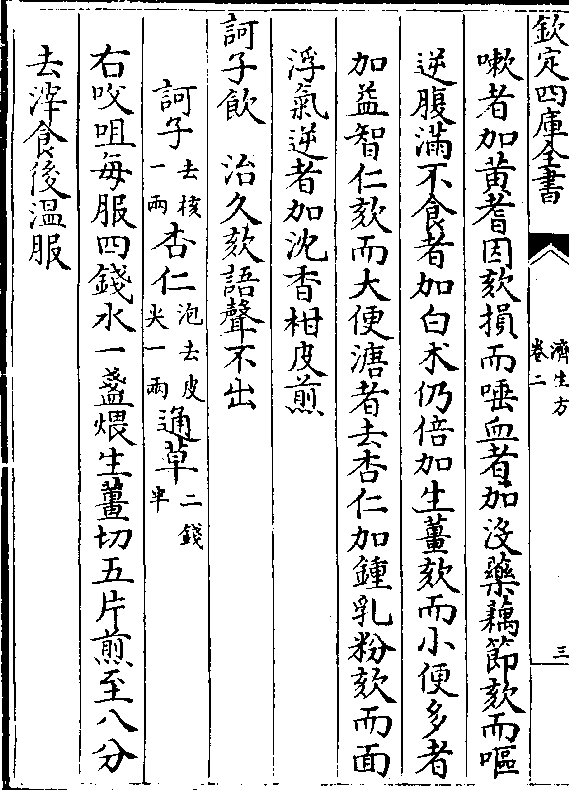 欽定四庫全書
濟生方
卷二
三
嗽者加黄耆因欬損而唾血者加没藥藕節欬而嘔
逆腹滿不食者加白朮仍倍加生薑欬而小便多者
加益智仁欬而大便溏者去杏仁加鍾乳粉欬而面
浮氣逆者加沈香柑皮煎
訶子飲　治久欬語聲不出
訶子去核一兩 杏仁泡去皮尖一兩 通草二錢半
右㕮咀每服四錢水一盞煨生薑切五片煎至八分
去滓食後温服